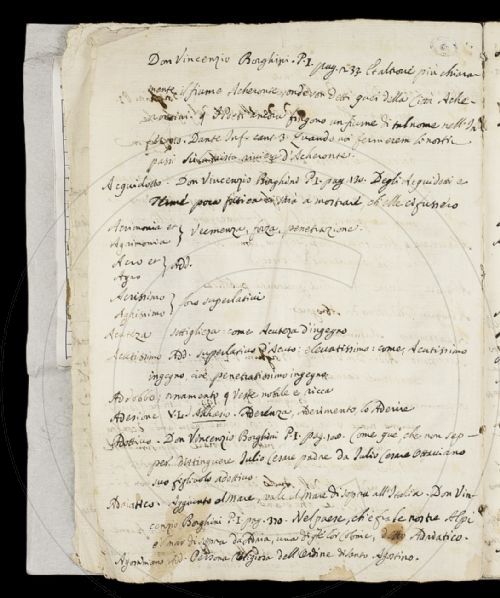 Don Vincenzio Borghini. P. I. pag. 233. Et altrove più chiara-
mente il fiume Acheronte, onde son detti quei della Città Ache-
rontini: q Poeti fingono un fiume di tal nome nell'In-
ferno. Dante Inf. cant. 3. Quando noi fermerem li nostri
passi Su la trista riviera d'Acheronte.
Acquidotto. Don Vincenzio Borghini P. I. pag. 130. Degli Acquidosi e
Terme poca fatica ci sarà a mostrare ch'elle ci fussero
Acrimonia et
Agrimonia } Veemenza, forza, penetrazione.
Acro et
Agro } Add.
Acerissimo
Aghissimo } loro superlativi
Acutezza sottigliezza: come Acutezza d'ingegno
Acutissimo Add: superlativo d'Acuto: elevatissimo: come, Acutissimo
ingegno, cioè penetratissimo ingegno
Addobbo; ornamento, q Veste nobile e ricca
Adesione V. L. Aderenza, Aderimento, lo Aderire
Adottivo. Don Vincenzio Borghini P. I. pag. 100. Come que, che non sep-
per distinguere Iulio Cesare padre da Iulio Cesare Ottaviano
suo figliuolo adottivo.
Adriatico. Aggiunto al Mare, vale il Mare di sopra all'Italia. Don Vin-
cenzio Borghini P. I. pag. 170. Nel paese, ch'è fra le nostre Alpi
e'l mar di sopra d'Adria, detto Adriatico.
Agostiniano Add. Persona Religiosa dell'Ordine di Santo Agostino.